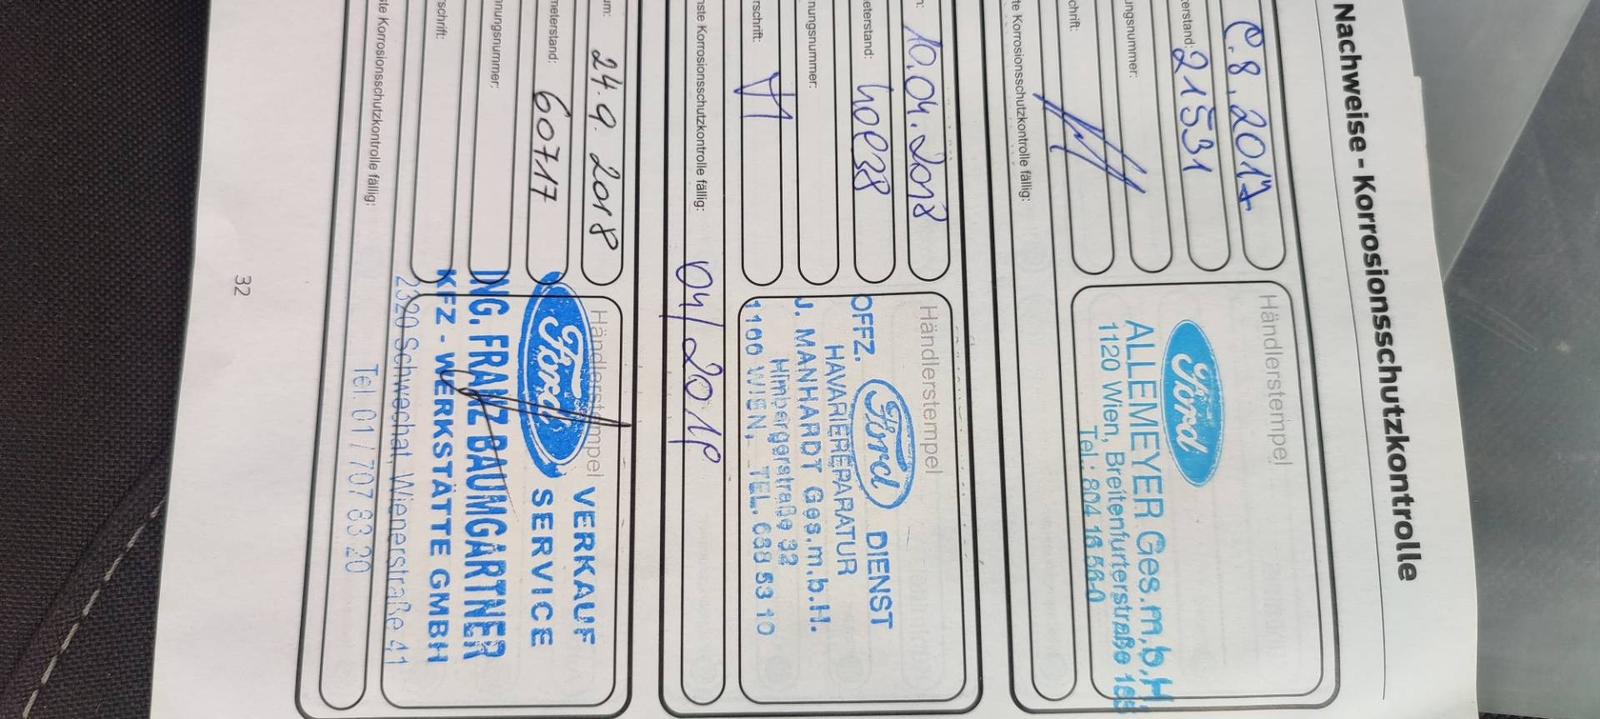 Nachweise - Korrosionsschutzkontrolle
8.2017
Händlerstempel
erstand: 21531
ungsnummer:
chrift:
te Korrosionsschutzkontrolle fällig:
Ford
ALLEMEYER Ges.m.b.H.
1120 Wien, Breitenfurterstraße
Tel.: 804 16 56-0
10.04.2018
Händlerstempel
eterstand:
nungsnummer:
rschrift:
hste Korrosionsschutzkontrolle fällig: 04/2019
OFFZ. Ford DIENST
HAVARIEREPARATUR
J. MANHARDT Ges.m.b.H.
Himbergerstraße 32
1100 WIEN, TEL. 688 53 10
um: 24.9.2018
Händlerstempel
meterstand: 60717
hnungsnummer:
rschrift:
ste Korrosionsschutzkontrolle fällig:
Ford VERKAUF
SERVICE
ING. FRANZ BAUMGARTNER
KFZ - WERKSTÄTTE GMBH
2320 Schwechat, Wienerstraße 41
Tel. 01 / 707 83 20
32